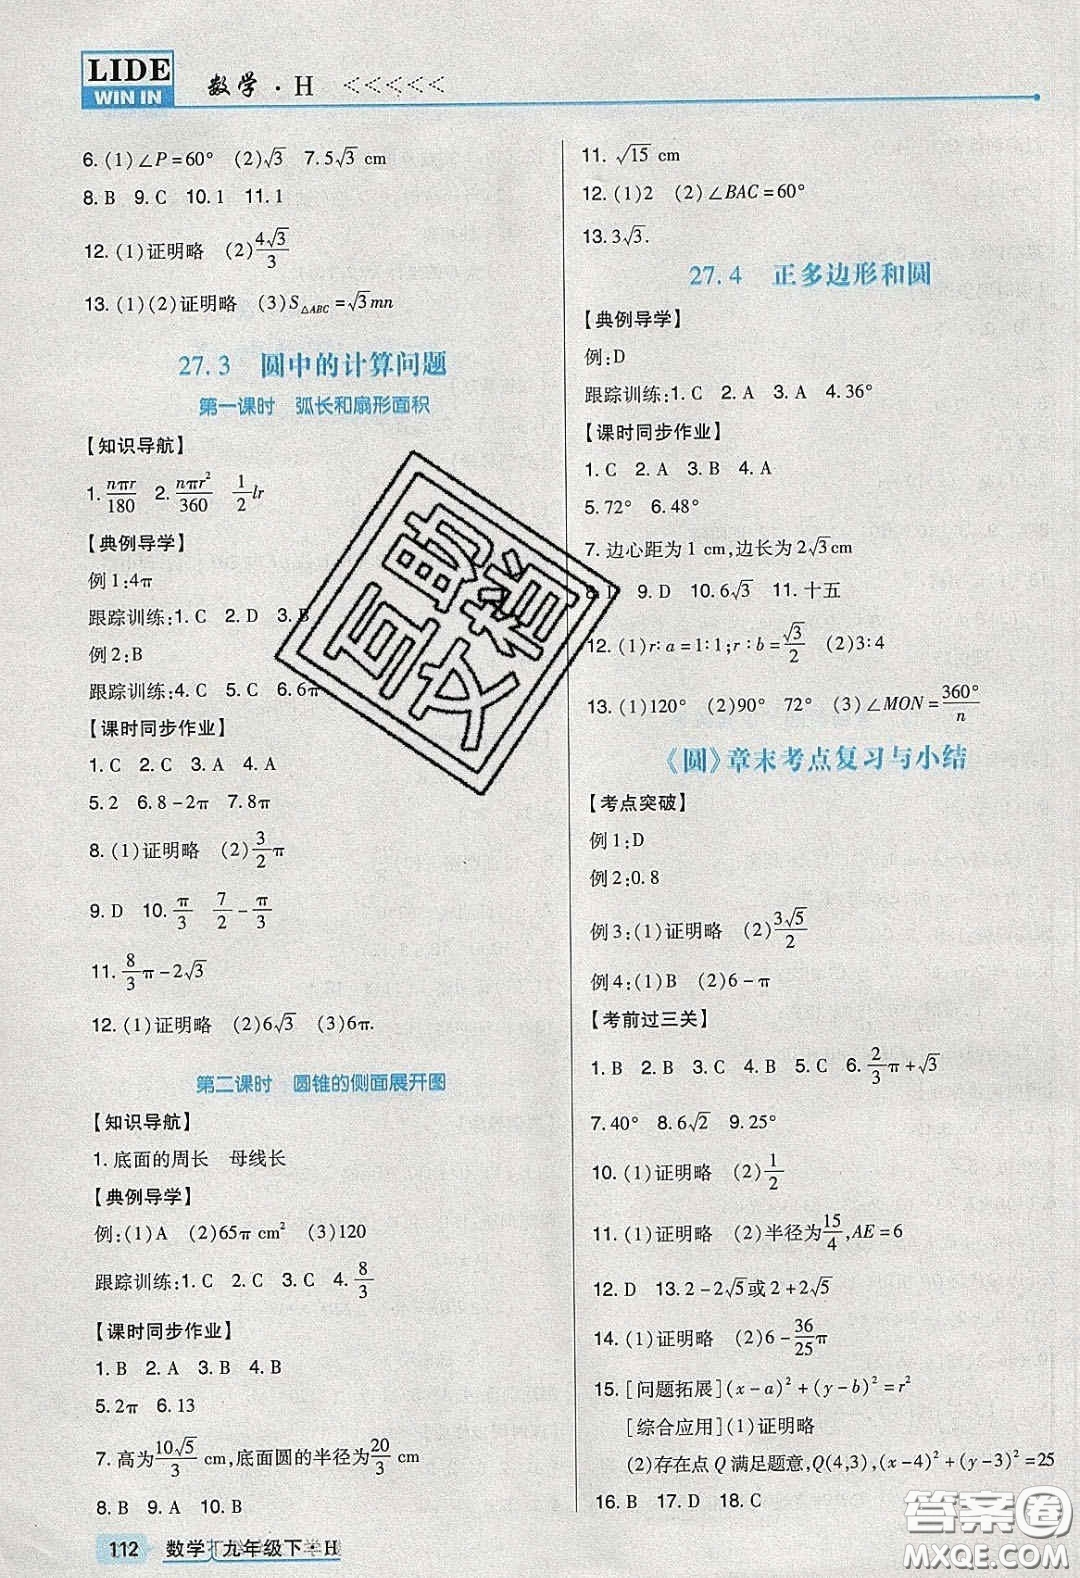 LIDE
WIN IN
数学·H
6. (1)∠P=60° (2)√3 7. 5√3 cm
8. B 9. C 10. 1 11. 1
12. (1)证明略 (2)4√3/3
13. (1)(2)证明略 (3)S△ABC=√3mn
27.3 圆中的计算问题
第一课时 弧长和扇形面积
【知识导航】
1. nπr/180 2. nπr²/360 1/2 lr
【典例导学】
例1:4π
跟踪训练:1. C 2. D 3. B
例2:B
跟踪训练:4. C 5. C 6. 6π
【课时同步作业】
1. C 2. C 3. C 4. A
5. 2 6. 8-2π 7. 8π
8. (1)证明略 (2)3/2π
9. D 10. π/3 7/2-π/3
11. 8/3π-2√3
12. (1)证明略 (2)6√3 (3)6π.
第二课时 圆锥的侧面展开图
【知识导航】
1. 底面的周长 母线长
【典例导学】
例:(1)A (2)65π cm² (3)120
跟踪训练:1. C 2. C 3. C 4. 8/3
【课时同步作业】
1. B 2. A 3. B 4. B
5. 2π 6. 13
7. 高为10√5/3 cm,底面圆的半径为20/3 cm
8. B 9. A 10. B
112 数学 九年级下·H
11. √15 cm
12. (1)2 (2)∠BAC=60°
13. 3√3.
27.4 正多边形和圆
【典例导学】
例:D
跟踪训练:1. C 2. A 3. C 4. 36°
【课时同步作业】
1. C 2. A 3. B 4. A
5. 72° 6. 48°
7. 边心距为1 cm,边长为2√3cm
9. D 10. 6√3 11. 十五
12. (1)r∶a=1∶1;r∶b=√3/2 (2)3∶4
13. (1)120° (2)90° 72° (3)∠MON=360°/n
《圆》章末考点复习与小结
【考点突破】
例1:D
例2:0.8
例3:(1)证明略 (2)3√5/2
例4:(1)B (2)6-π
【考前过三关】
1. B 2. D 3. B 4. A 5. C 6. 2/3π+√3
7. 40° 8. 6√2 9. 25°
10. (1)证明略 (2)1/2
11. (1)证明略 (2)半径为15/4,AE=6
12. D 13. 2-2√5或2+2√5
14. (1)证明略 (2)6-36/25π
15. [问题拓展](x-a)²+(y-b)²=r²
[综合应用](1)证明略
(2)存在点Q满足题意,Q(4,3),(x-4)²+(y-3)²=25
16. B 17. D 18. C
互助文档
答案圈
MXQE.COM